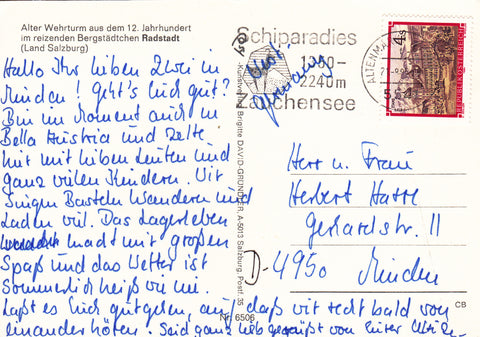 Alter Wehrturm aus dem 12. Jahrhundert
im reizenden Bergstädtchen Radstadt
(Land Salzburg)
Hallo Ihr lieben Zwei in
Minden! Geht's Euch gut?
Bin im Moment auch in
Bella Austria und Zelte
hier mit lieben Leuten und
ganz vielen Kindern. Wir
Singen Basteln Wandern und
Lachen viel. Das Lagerleben
macht mir großen
Spaß und das Wetter ist
Sommerlich heiß wie nie.
Laßt es Euch gutgehen, auf daß wir recht bald von
einander hören. Seid ganz lieb gegrüßt von Eurer
Kunstverlag Brigitte DAVID-GRÜNDLER, A-5013 Salzburg, Postf. 35
Nr. 6506
Schiparadies
1350-
2240m
Zauchensee
ALTENMA
REPUBLIK ÖSTERREICH
Herr u. Frau
Herbert Hasse
Gerhardstr. 11
D-4950 Minden
CB